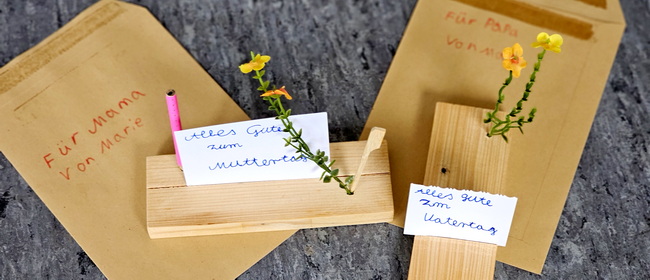 Für Mama
Von Marie
Alles Gute
zum
Muttertag
Für Papa
Von Ma
Alles gute
zum
Vatertag